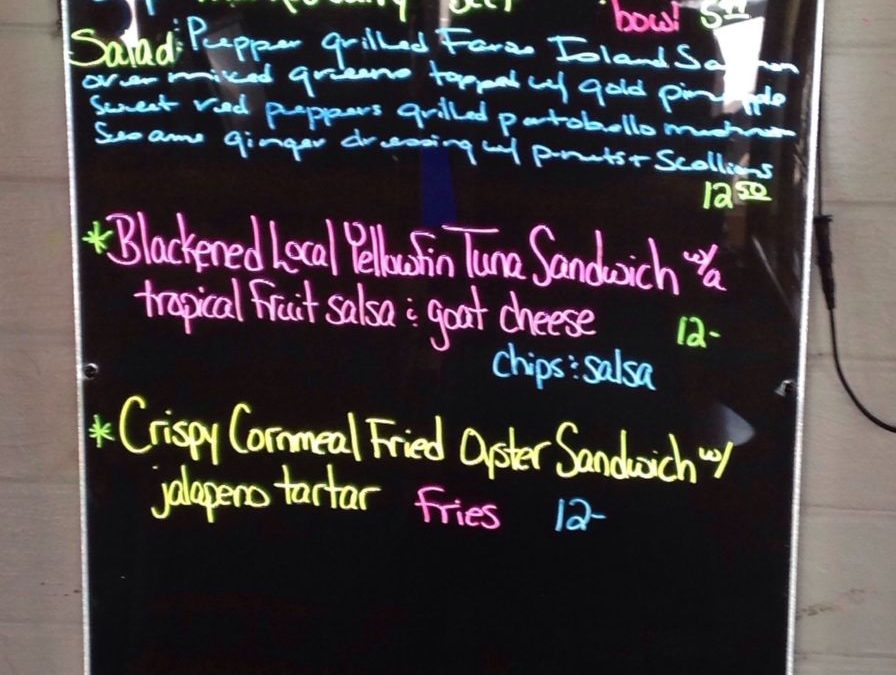 Beef bowl 5
Salad: Pepper grilled Faroe Island Salmon
over mixed greens topped w/ gold pineapple
sweet red peppers grilled portobello mushroom
Sesame ginger dressing w/ p-nuts + Scallions
12 50
* Blackened Local Yellowfin Tuna Sandwich w/a
tropical fruit salsa & goat cheese 12-
chips & salsa
* Crispy Cornmeal Fried Oyster Sandwich w/
jalapeno tartar Fries 12-